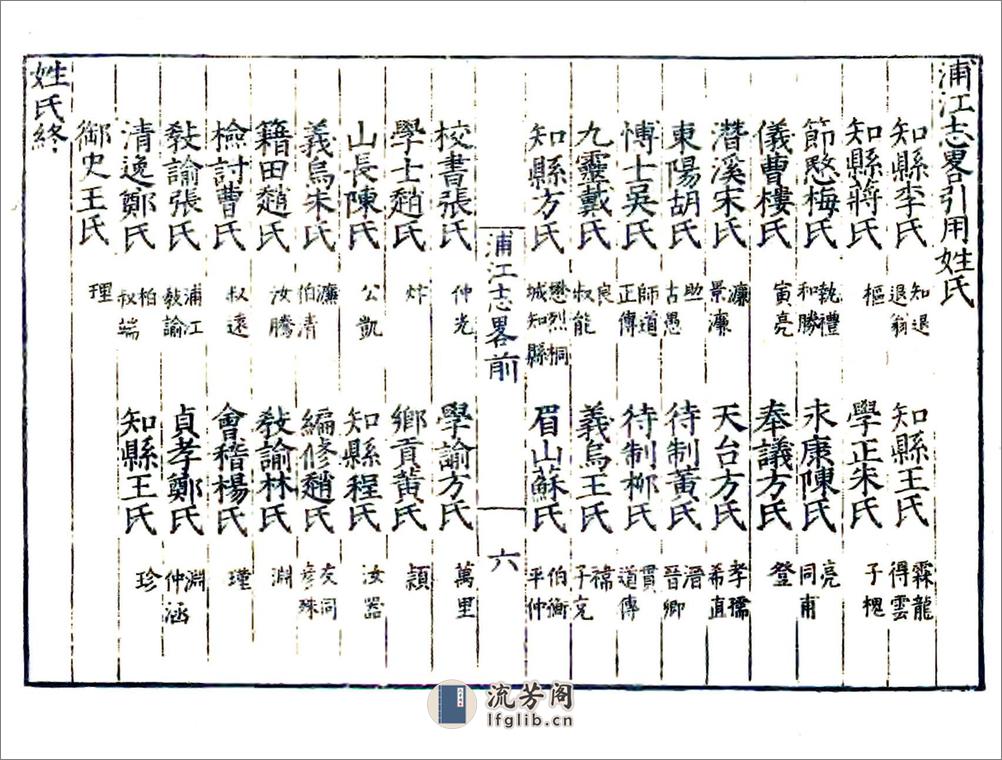 浦江志畧引用姓氏
知縣李氏 知退退翁 知縣王氏 霖龍得雲
知縣蔣氏 樞 學正朱氏 子槐
節愍梅氏 執禮和勝 永康陳氏 亮同甫
儀曹樓氏 寅亮 奉議方氏 登
潛溪宋氏 濂景濂 天台方氏 孝孺希直
東陽胡氏 助古愚 待制黃氏 溍晉卿
博士吳氏 師道正傳 待制柳氏 貫道傳
九靈戴氏 良叔能 義烏王氏 禕子充
知縣方氏 懋烈桐城知縣 眉山蘇氏 伯衡平仲
浦江志畧前 六
校書張氏 仲光 學諭方氏 萬里
學士趙氏 鄉貢黃氏 頴
山長陳氏 公凱 知縣程氏 汝器
義烏朱氏 濂伯清 編修趙氏 友同彥殊
籍田趙氏 汝騰 敎諭林氏 淵
檢討曹氏 叔遠 會稽楊氏 瑾
敎諭張氏 浦江敎諭 貞孝鄭氏 淵仲涵
清逸鄭氏 柏叔端 知縣王氏 珍
御史王氏 理
姓氏終
流芳阁
lfglib.cn